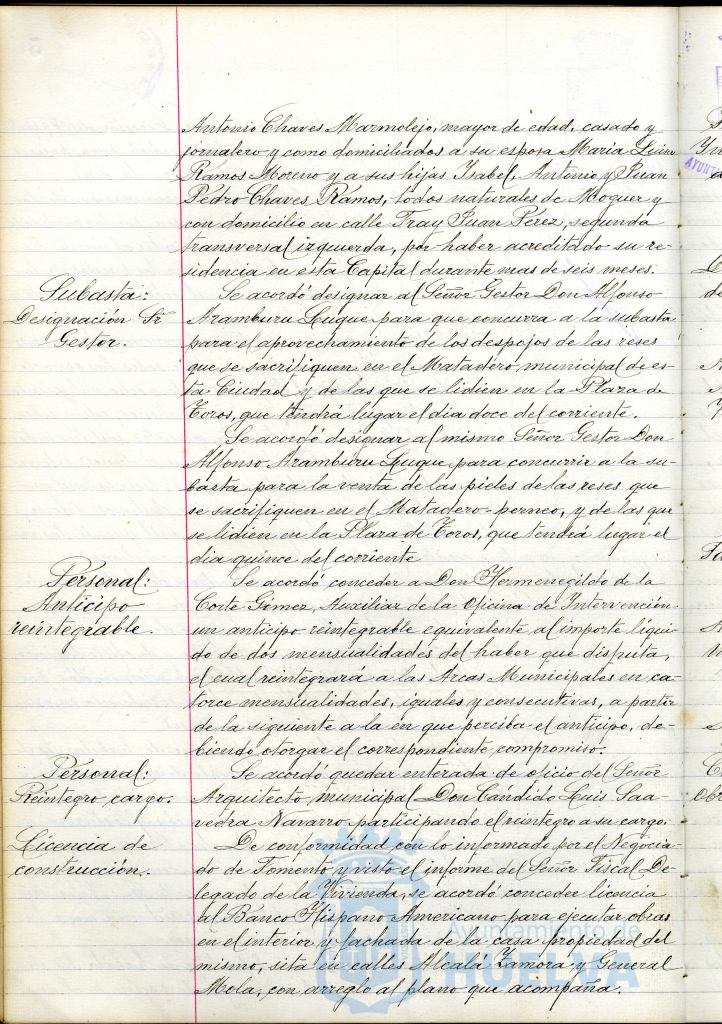 Antonio Chaves Marmolejo, mayor de edad, casado y
jornalero y como domiciliados a su esposa Maria Luisa
Ramos Moreno y a sus hijas Isabel, Antonio y Juan
Pedro Chaves Ramos, todos naturales de Moguer y
con domicilio en calle Fray Juan Pérez, segunda
transversal izquierda, por haber acreditado su re-
sidencia en esta Capital durante mas de seis meses.
Subasta:
Designación Sr
Gestor.
Se acordó designar al Señor Gestor Don Alfonso
Aramburu Luque para que concurra a la subasta
para el aprovechamiento de los despojos de las reses
que se sacrifiquen en el Matadero municipal de es-
ta Ciudad y de las que se lidien en la Plaza de
Toros, que tendrá lugar el dia doce del corriente.
Se acordó designar al mismo Señor Gestor Don
Alfonso Aramburu Luque para concurrir a la su-
basta para la venta de las pieles de las reses que
se sacrifiquen en el Matadero-perneo, y de las que
se lidien en la Plaza de Toros, que tendrá lugar el
dia quince del corriente
Personal:
Anticipo
reintegrable.
Se acordó conceder a Don Hermenegildo de la
Corte Gómez, Auxiliar de la Oficina de Intervención
un anticipo reintegrable equivalente al importe líqui-
do de dos mensualidades del haber que disfruta,
el cual reintegrará a las Arcas Municipales en ca-
torce mensualidades, iguales y consecutivas, a partir
de la siguiente a la en que perciba el anticipo, de-
biendo otorgar el correspondiente compromiso.
Personal:
Reintegro cargo.
Se acordó quedar enterada de oficio del Señor
Arquitecto municipal Don Cándido Luis Saa-
vedra Navarro participando el reintegro a su cargo.
Licencia de
construcción.
De conformidad con lo informado por el Negocia-
do de Fomento y visto el informe del Señor Fiscal De-
legado de la Vivienda, se acordó conceder licencia
al Banco Hispano Americano para ejecutar obras
en el interior y fachada de la casa propiedad del
mismo, sita en calles Alcalá Zamora y General
Mola, con arreglo al plano que acompaña.
Ayuntamiento de
HUELVA